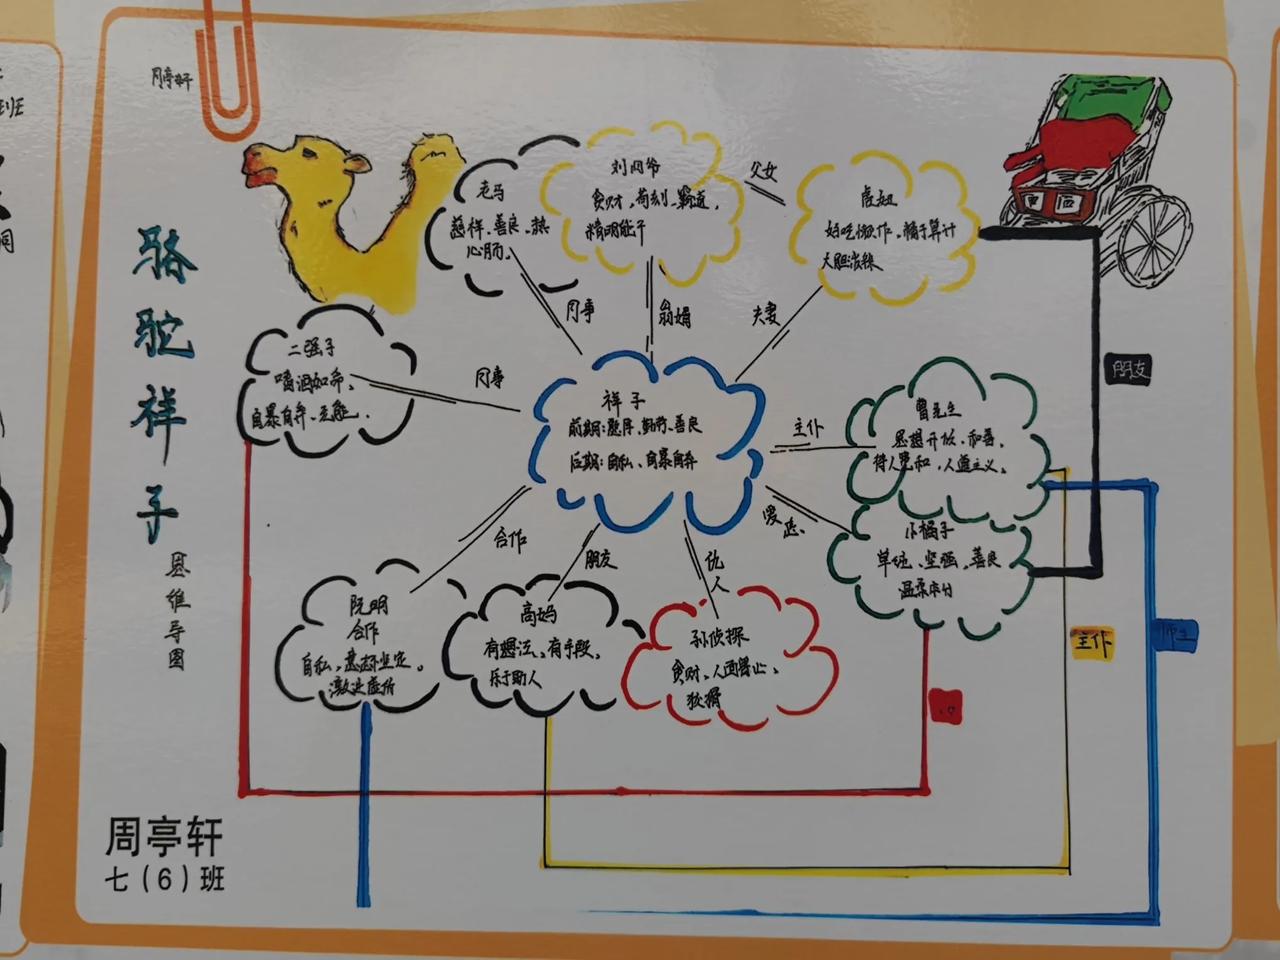 周亭轩
骆驼祥子
思维导图
老马
慈祥、善良、热
心肠。
刘四爷
贪财、苛刻、霸道、
精明能干
父女
虎妞
好吃懒作、精于算计
大胆泼辣
同事
翁婿
夫妻
二强子
嗜酒如命、
自暴自弃、无能.
同事
祥子
前期:憨厚、勤劳、善良
后期:自私、自暴自弃
主仆
曹先生
思想开放、和善、
待人宽和、人道主义。
朋友
爱恋
小福子
单纯、坚强、善良
温柔本分
合作
朋友
仇人
阮明
合作
自私、意志不坚定。
激进虚伪
高妈
有想法、有手段、
乐于助人
孙侦探
贪财、人面兽心、
狡猾
主仆
师生
周亭轩
七(6)班